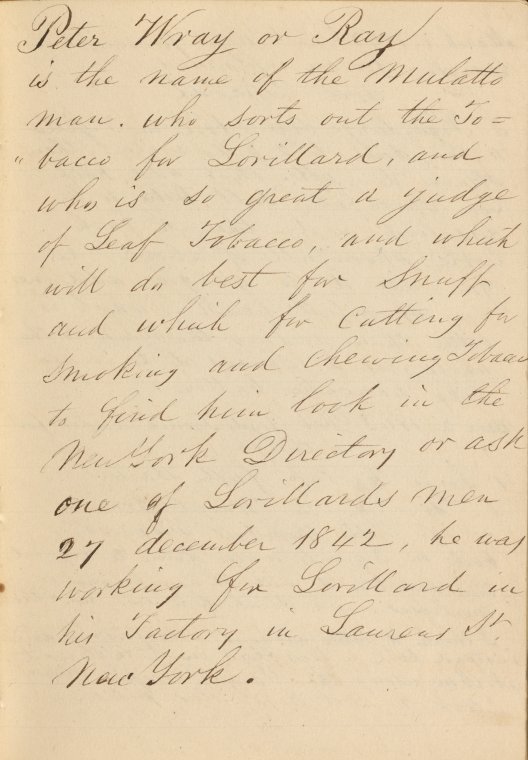 Peter Wray or Ray
is the name of the Mulatto
man. who sorts out the To=
" bacco for Lorillard, and
who is so great a judge
of Leaf Tobacco, and which
will do best for Snuff
and which for Cutting for
Smoking and chewing Tobacco
to find him look in the
New York Directory or ask
one of Lorillards men
27 december 1842, he was
working for Lorillard in
his Factory in Laurens St.
New York.